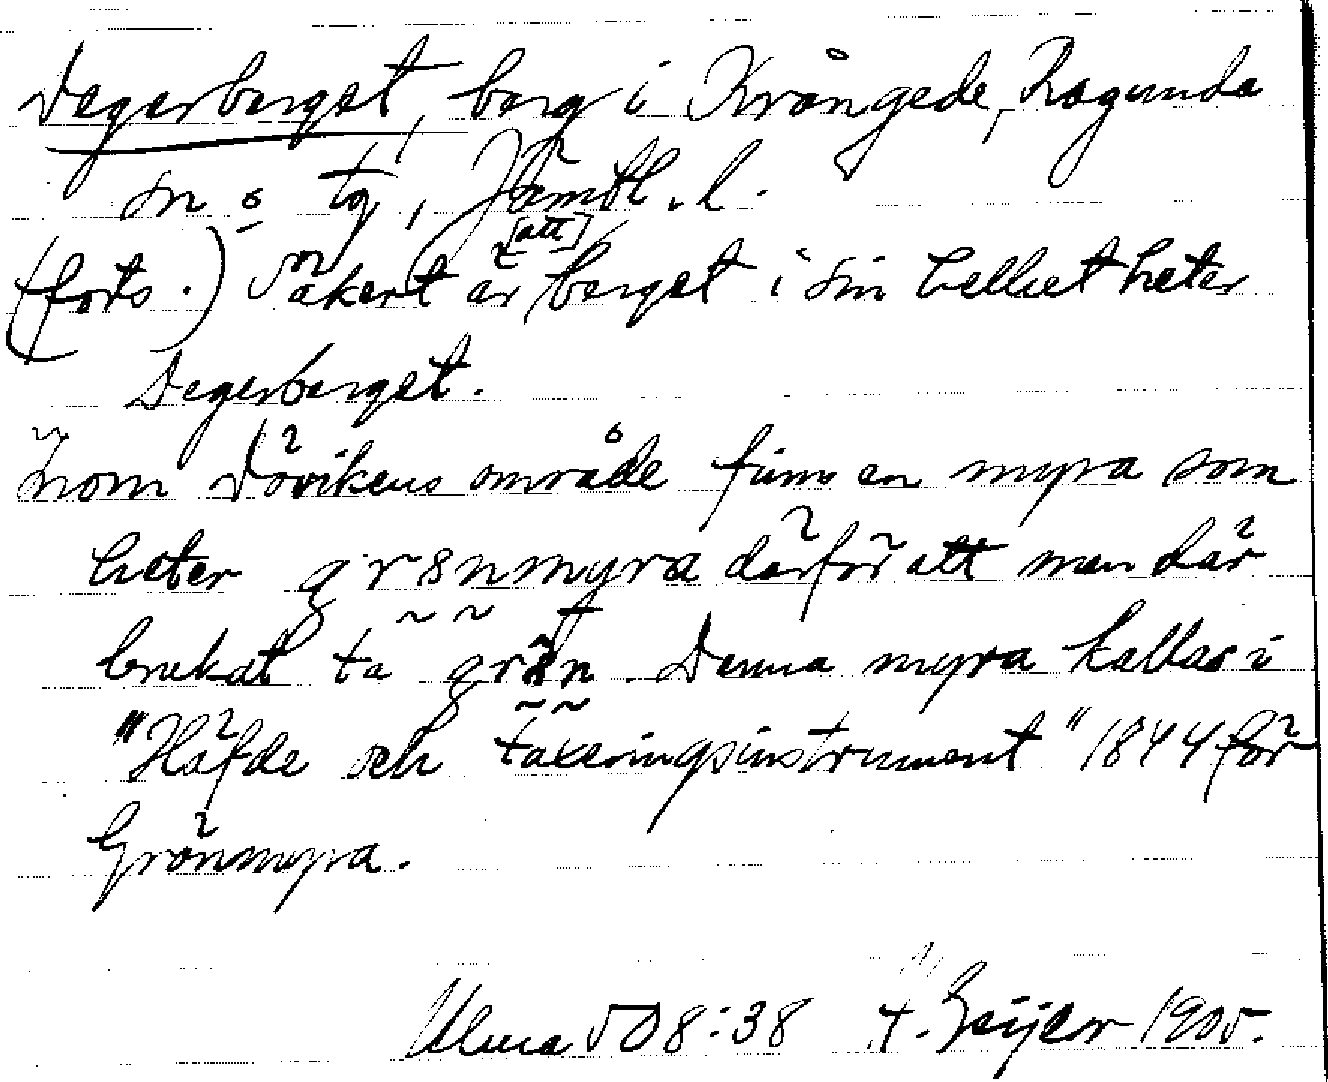 Degerberget, berg i Krångede, Ragunda
sn o tg, Jämtl. l.
(forts.) Säkert är [att] berget i sin helhet heter
Degerberget.
Inom Dövikens område finns en myra som
heter grönmyra därför att man där
brukat ta grön. Denna myra kallas i
"Häfde och taxeringsinstrument" 1844 för
Grönmyra.
Ulma 508:38 H. Geijer 1905.